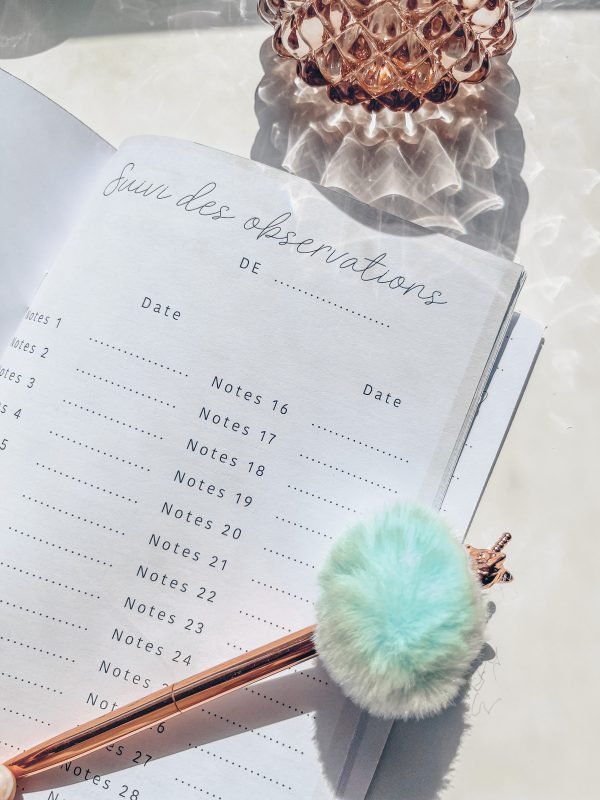 Suivi des observations
DE ....................
Date
Notes 1
Notes 2
Notes 3
s 4
5
Date
Notes 16
Notes 17
Notes 18
Notes 19
Notes 20
Notes 21
Notes 22
Notes 23
Notes 24
Notes 2
Not 6
es 27
Notes 28